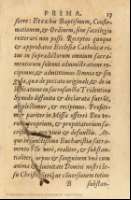 PRIMA. 17
ferre: Et ex his Baptismum, Confir-
mationem, & Ordinem, sine sacrilegio
reiterari non posse. Receptos quoque
& approbatos Ecclesiæ Catholicæ ri-
tus in supradictorum omnium Sacra-
mentorum solemni administratione re-
cipio, & admitto. Omnia & singu-
la, quæ de peccato originali, & de iusti-
ficatione in sacrosancta Tridentina
Synodo definita & declarata fuerunt,
recipio. Profiteor
pariter in Missa offerri Deo ve-
rum, proprium, & propitiatorium
pro & defunctis. Atque
in sanctissimo Eucharistiæ Sacra-
mento esse verè, realiter, & substan-
tialiter, & sanguinem
cum anima & Domini nostri Ie-
su Christi, conuersionem totius
B substan-